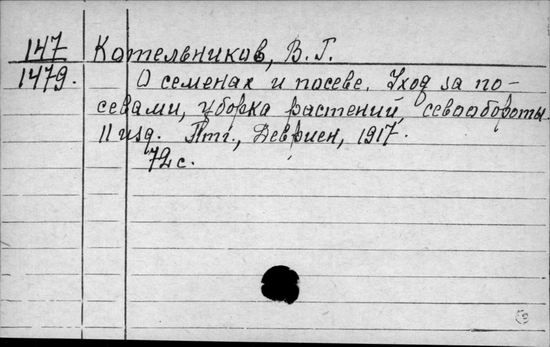 147 Котельников, В. Г.
1479. О семенах и посеве. Уход за по-
севами, уборка растений, севообороты.
II изд. Птг., Девриен, 1917.
72 с.